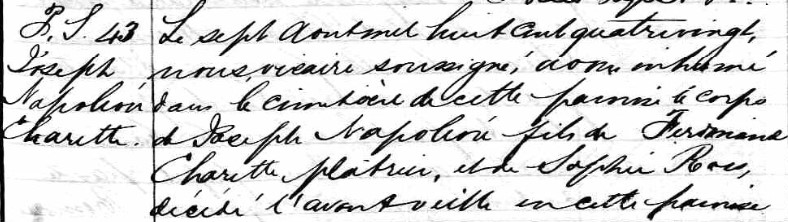 P. S. 43 Le sept Aout mil huit cent quatrevingt,
Joseph nous, vicaire soussigné, avons inhumé
Napoléon dans le cimetière de cette paroisse le corps
Charette. de Joseph Napoléon fils de Ferdinand
Charette plâtrier, et de Sophie
décédé l'avant veille en cette paroisse